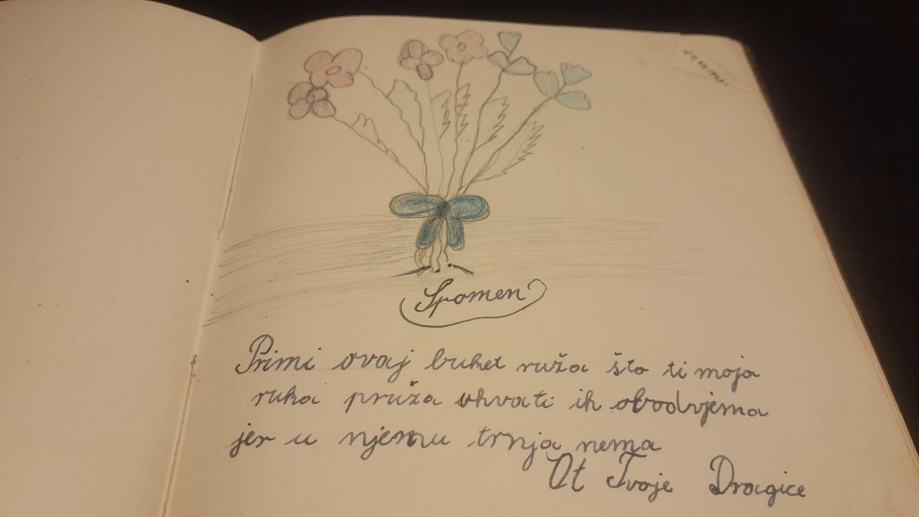 Spomen
Primi ovaj buket ruža što ti moja
ruka pruža uhvati ih obodvjema
jer u njemu trnja nema
Ot Tvoje Dragice